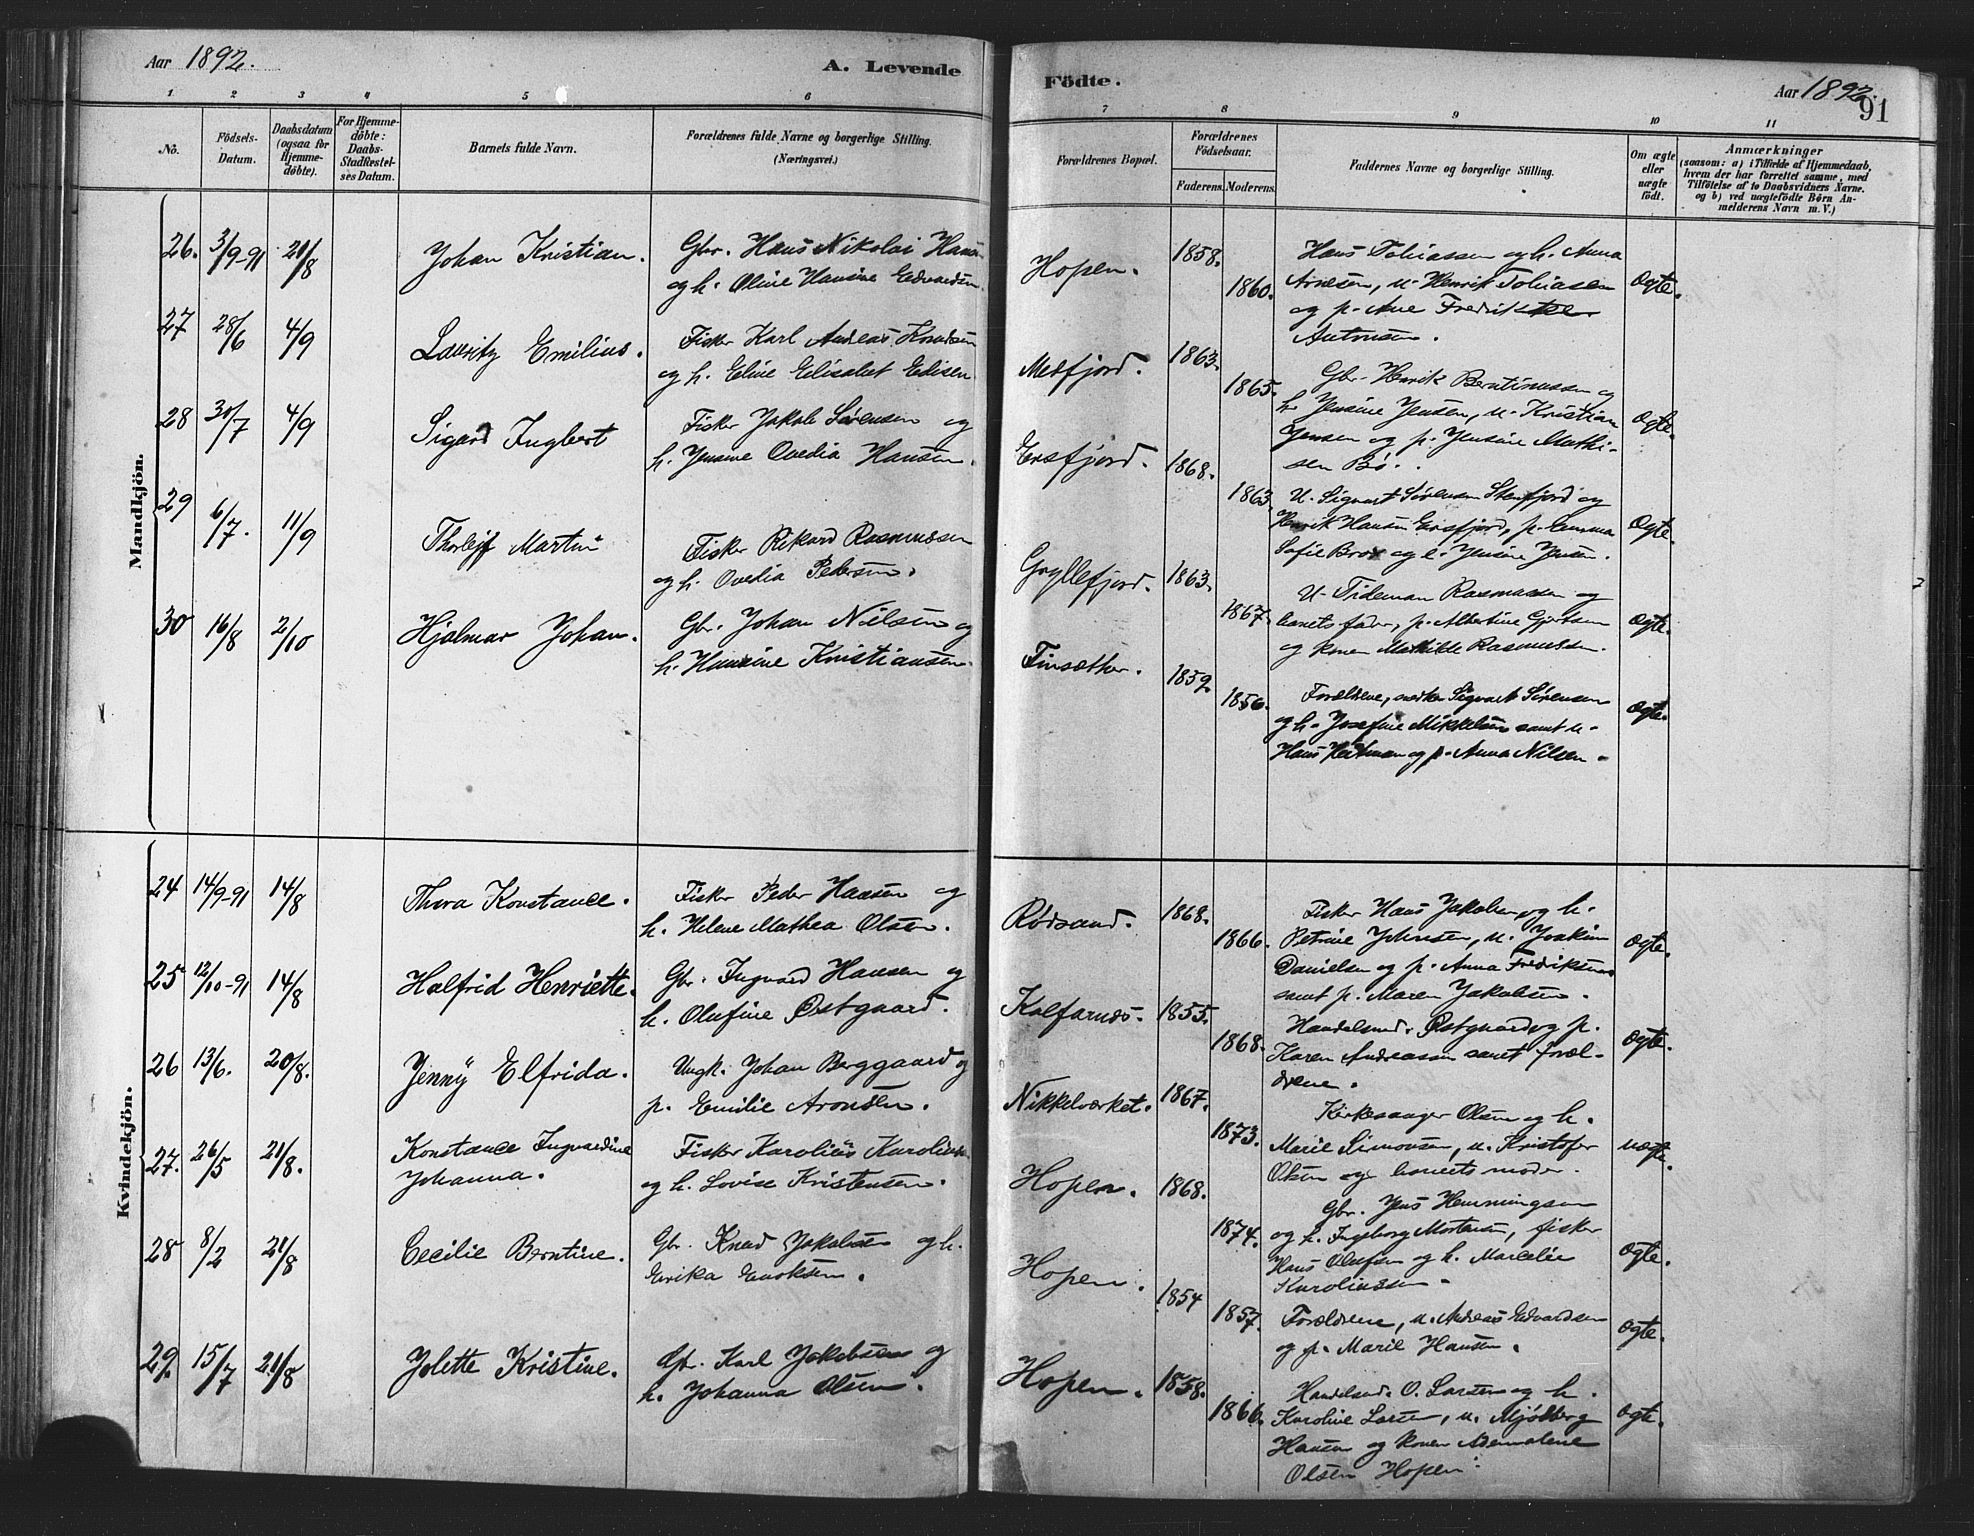 Aar 1892.
A. Levende
Födte.
Aar 1892.
91
1 2 3 4 5 6 7 8 9 10 11
No.
Födsels-
Datum.
Daabsdatum
(ogsaa for
Hjemme-
døbte).
For Hjemme-
døbte:
Daabs-
Stadfæstel-
ses Datum.
Barnets fulde Navn.
Forældrenes fulde Navne og borgerlige Stilling.
(Næringsvei.)
Forældrenes Bopæl.
Forældrenes
Födselsaar.
Faderens. Moderens.
Faddernes Navne og borgerlige Stilling.
Om ægte
eller
uægte
født.
Anmærkninger
(saasom: a) i Tilfælde af Hjemmedaab,
hvem der har forrettet samme, med
Tilföielse af to Daabsvidners Navne.
og b) ved uægtefödte Börn An-
melderens Navn m. V.)
Mandkjön.
26. 3/9-91 21/8 Johan Kristian. Gbr. Hans Nikolai Hansen
og h. Oline Hansine Edvardsen.
Hopen. 1858. 1860.
Hans Tobiassen og h. Anna
Arnesen, u. Henrik Tobiasen
og p. Ane Fredrikke
Antonsen.
Ægte.
27 28/6 4/9 Lauritz Emilius. Fisker Karl Andreas Knudsen
og h. Eline Elisabet Edisen
Mefjord. 1863. 1865.
Gbr. Henrik Berntinussen og
h. Jensine Jensen, u. Kristian
Jensen og p. Jensine Mathi-
sen Bø.
Ægte.
28 30/7 4/9 Sigard Ingbert Fisker Jakob Sørensen og
h. Jensine Ovedia Hansen.
Ersfjord. 1868. 1863
U. Sigvart Sørensen Stenfjord og
Henrik Hansen Ersfjord, p. Emma
Sofie Brox og e. Jensine Jensen.
Ægte.
29 6/7. 11/9 Thorleif Martin Fisker Rikard Rasmussen
og h. Ovedia Pedersen.
Gryllefjord. 1863. 1867.
U. Tideman Rasmussen og
barnets fader, p. Albertine Gjertsen
og konen Mathilde Rasmussen.
Ægte.
30 16/8 2/10 Hjalmar Johan. Gbr. Johan Nilsen og
h. Hansine Kristiansen.
Finsæther. 1859. 1856.
Forældrene, Sigvart Sørensen
og h. Josefine Mikkelsen samt u.
Hans og p. Anna Nilsen.
Ægte.
Kvindekjön.
24 14/9-91 14/8 Thora Konstance. Fisker Peder Hansen og
h. Helene Mathea Olsen.
Rødsand. 1868. 1866.
Fisker Hans Jakobsen og h.
Petrine Johnsen, u. Joakim
Danielsen og p. Anna Fredriksen
samt p. Maren Jakobsen.
Ægte.
25 12/10-91 14/8 Halfrid Henriette. Gbr. Ingvard Hansen og
h. Olufine Østgaard.
Kalfarnes. 1855. 1868.
Handelsmd. Østgaard og p.
Karen Andreassen samt foræl-
drene.
Ægte.
26 13/6. 20/8. Jenny Elfrida. Ungk. Johan Berggaard og
p. Emilie Aronsen.
Nikkelværket. 1867. 1873.
Kirkesanger Olsen og h.
Marie Simonsen, u. Kristofer
Olsen og barnets moder.
Uægte.
27. 26/5 21/8. Konstance Ingvardine
Johanna.
Fisker Karolius Karoliussen
og h. Lovise Kristensen.
Hopen. 1868. 1874.
Gbr. Jens Hemmingsen
og h. Ingeborg Mortensen, fisker
Hans Olufsen og h. Marcelie
Karoliussen.
Ægte.
28 8/2 21/8 Cecilie Berntine. Gbr. Knud Jakobsen og h.
Erika Enoksen.
Hopen. 1854 1857.
Forældrene, u. Andreas Edvardsen
og p. Marie Hansen.
Ægte.
29. 15/7 21/8 Jolette Kristine. Gbr. Karl Jakobsen og
h. Johanna Olsen.
Hopen. 1858. 1866.
Handelsmd. O. Larsen og h.
Karoline Larsen, u. Mjølberg
Hansen og konen
Olsen Hopen.
Ægte.